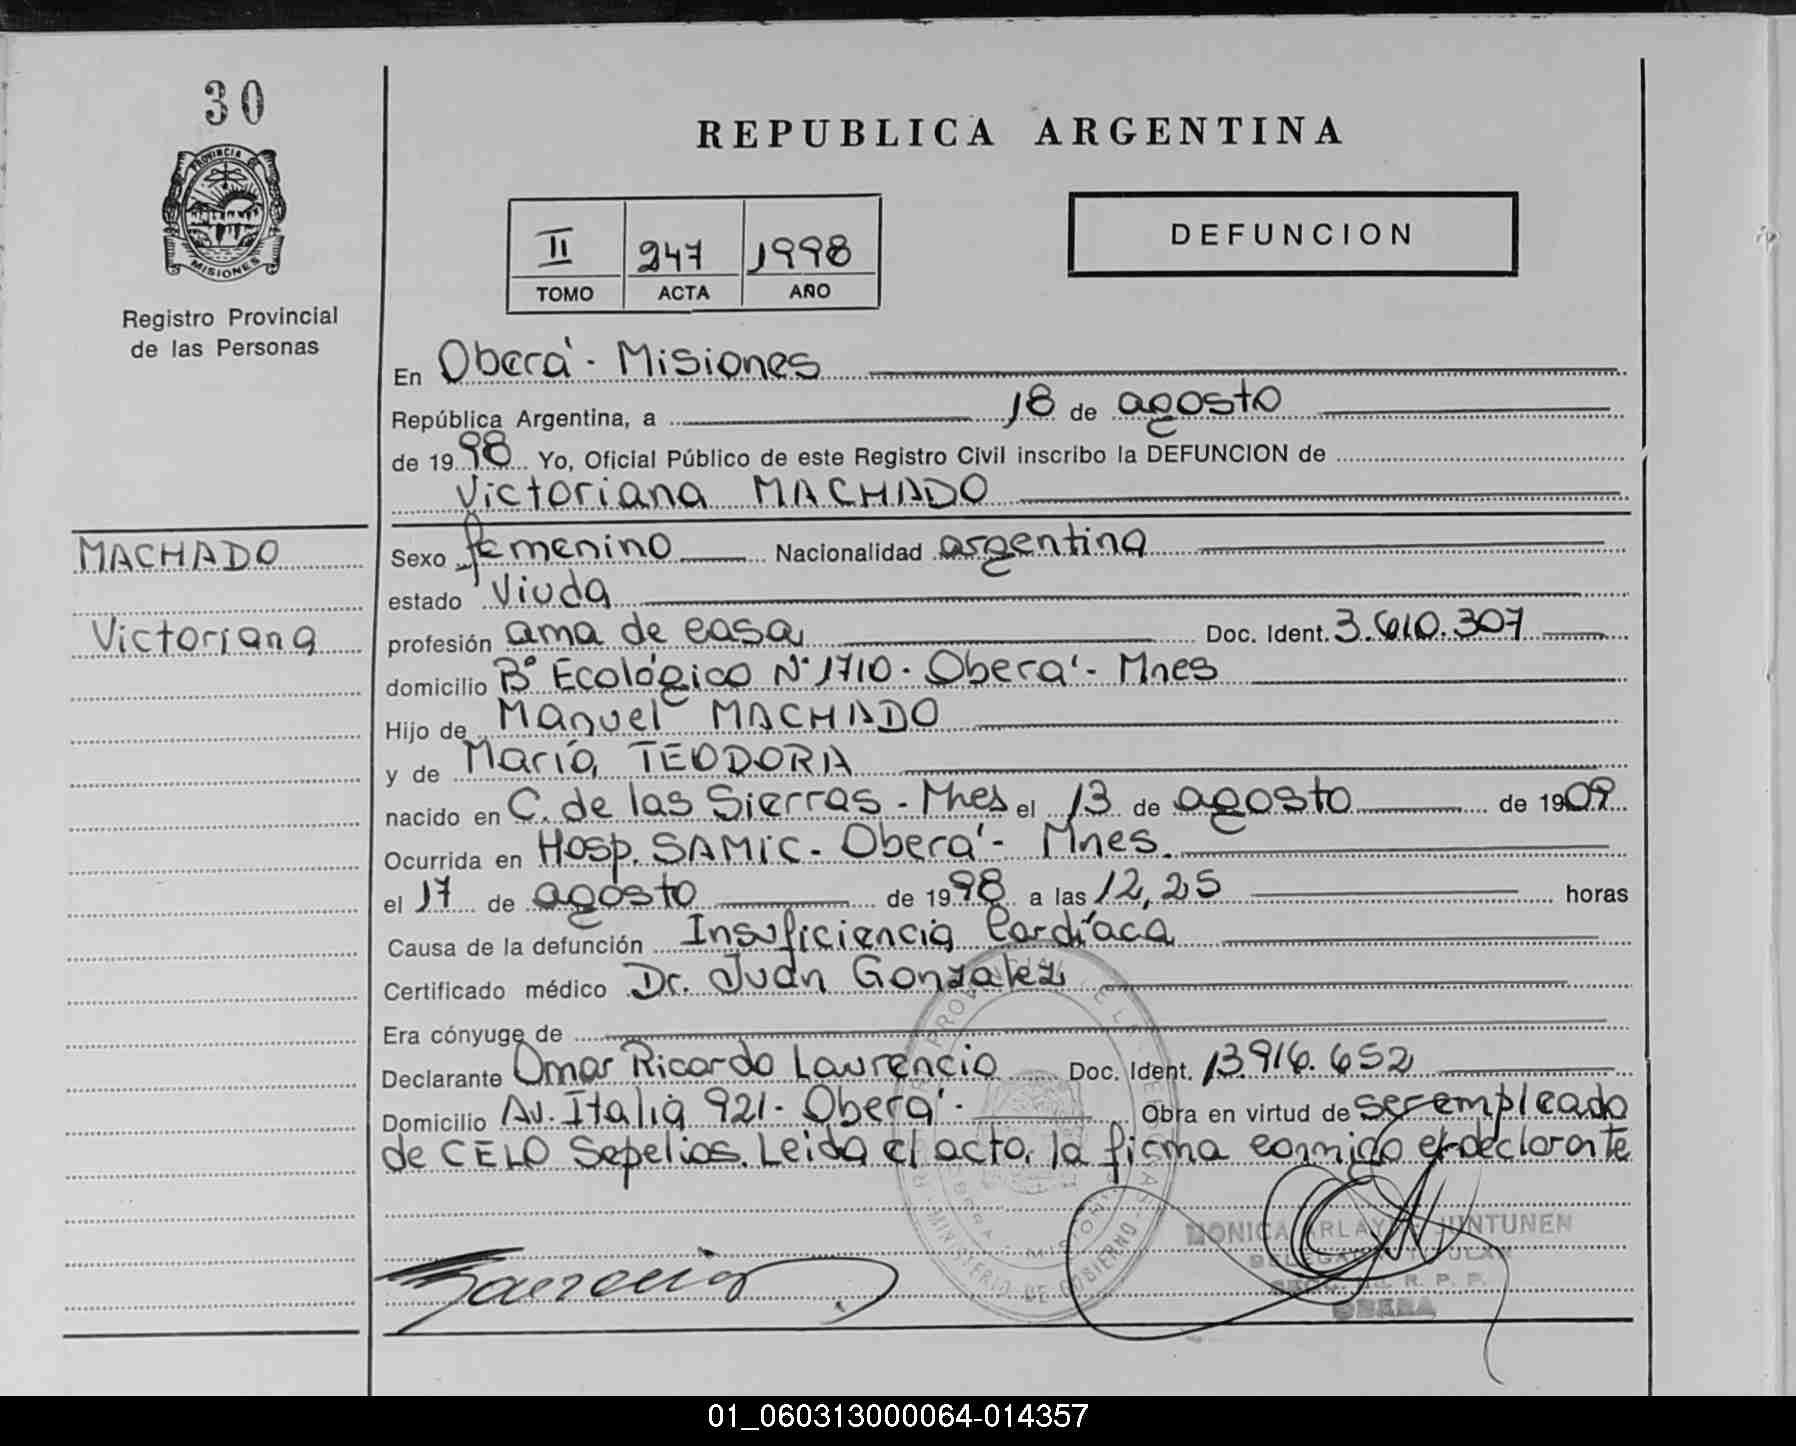 30
PROVINCIA DE
MISIONES
Registro Provincial
de las Personas
MACHADO
Victoriana
REPUBLICA ARGENTINA
II 247 1998
TOMO ACTA AÑO
DEFUNCION
En Oberá - Misiones
República Argentina, a 18 de agosto
de 1998 Yo, Oficial Público de este Registro Civil inscribo la DEFUNCION de
Victoriana MACHADO
Sexo femenino Nacionalidad argentina
estado Viuda
profesión ama de casa Doc. Ident. 3.610.307
domicilio B° Ecológico N° 1710 - Oberá - Mnes
Hijo de Manuel MACHADO
y de María TEODORA
nacido en C. de las Sierras - Mnes el 13 de agosto de 1909
Ocurrida en Hosp. SAMIC - Oberá - Mnes.
el 17 de agosto de 1998 a las 12,25 horas
Causa de la defunción Insuficiencia Cardíaca
Certificado médico Dr. Juan Gonzalez
Era cónyuge de
Declarante Omar Ricardo Laurencio Doc. Ident. 13.916.652
Domicilio Av. Italia 921 - Oberá - Obra en virtud de ser empleado
de CELO Sepelios. Leida el acta, la firma conmigo el declarante
MINISTERIO DE GOBIERNO
MONICA JUNTUNEN
R. P. P.
OBERA
01_060313000064-014357